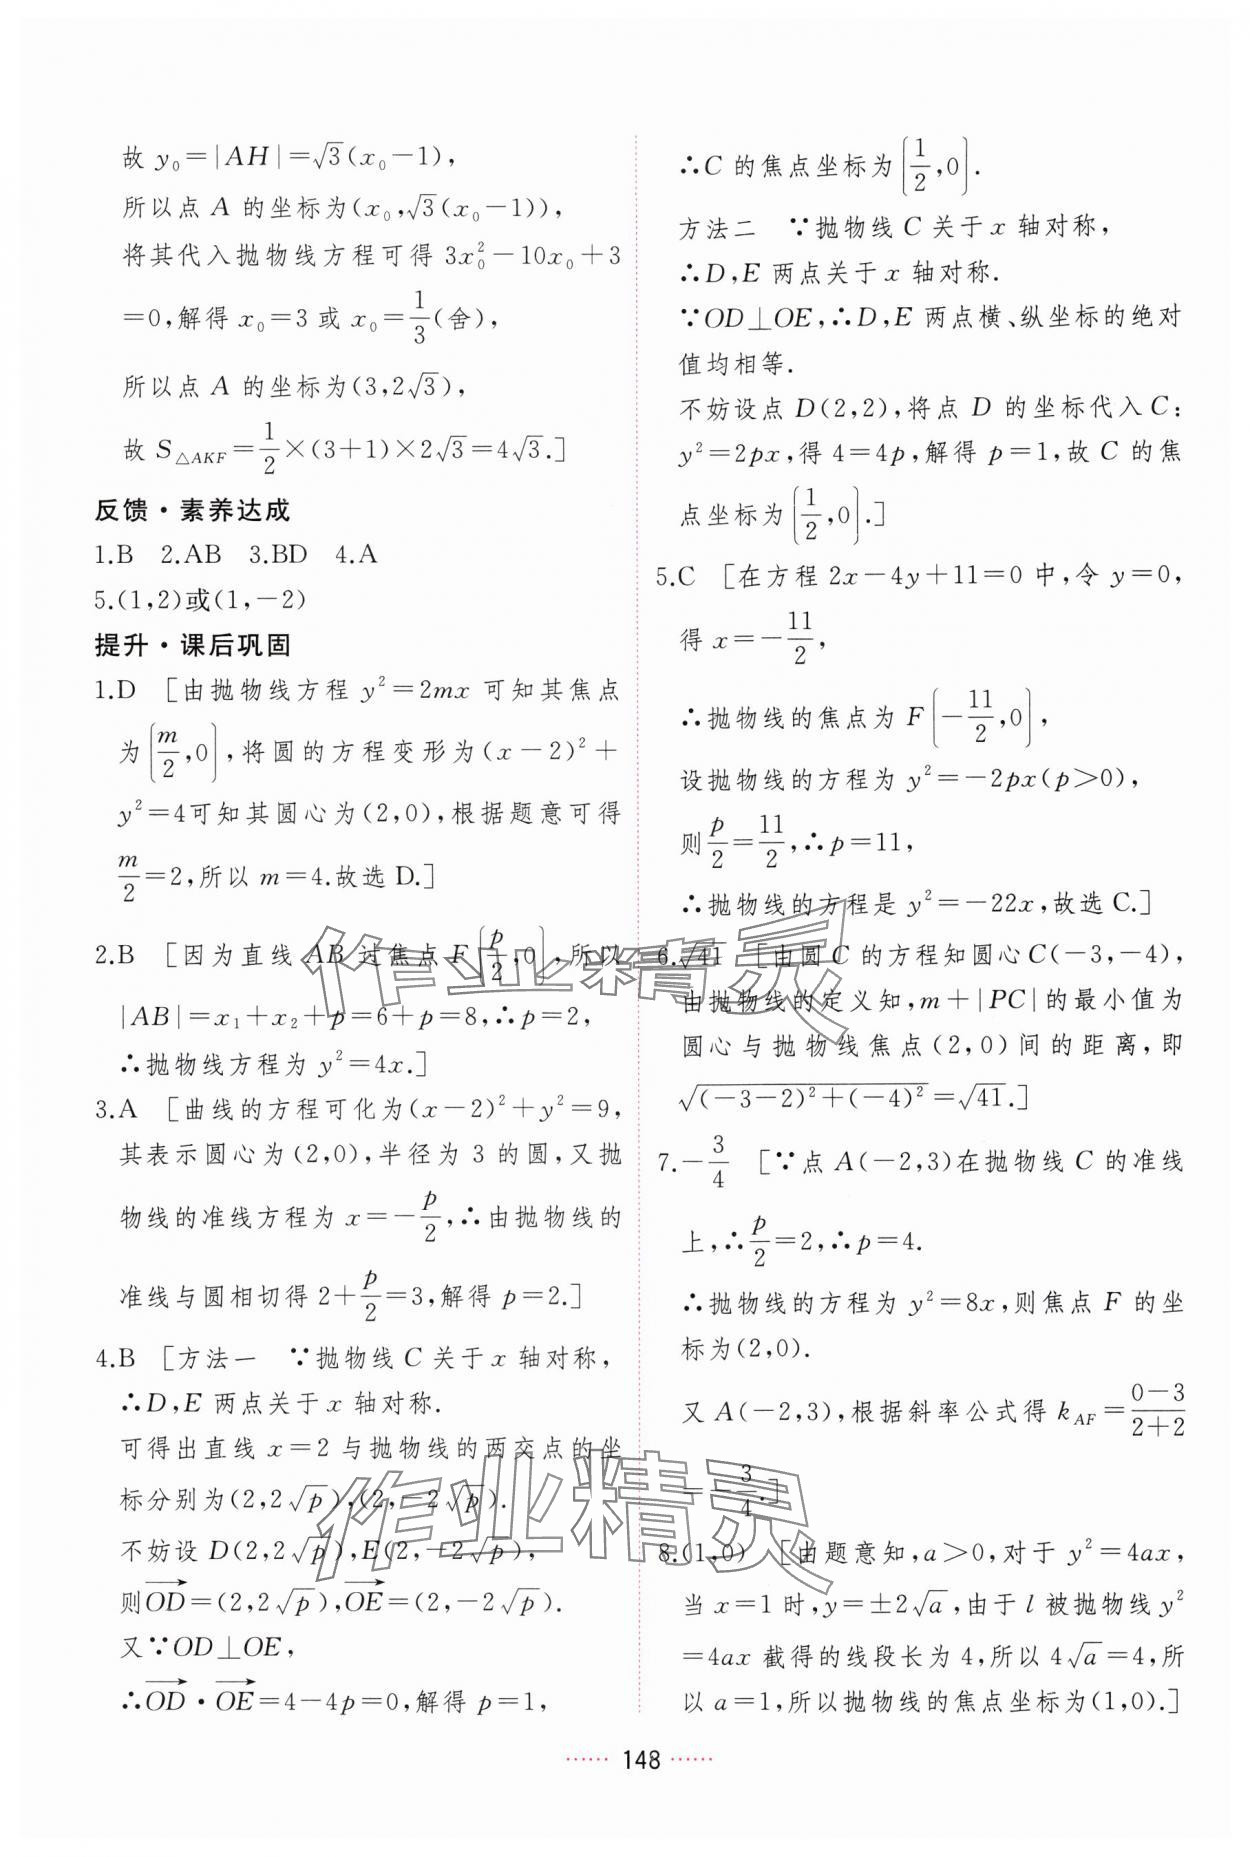 故 y₀=|AH|=√3(x₀-1),
所以点 A 的坐标为(x₀,√3(x₀-1)),
将其代入抛物线方程可得 3x₀²-10x₀+3
=0,解得 x₀=3 或 x₀=1/3(舍),
所以点 A 的坐标为(3,2√3),
故 S△AKF=1/2×(3+1)×2√3=4√3.]
反馈·素养达成
1.B 2.AB 3.BD 4.A
5.(1,2)或(1,-2)
提升·课后巩固
1.D [由抛物线方程 y²=2mx 可知其焦点
为(m/2,0),将圆的方程变形为(x-2)²+
y²=4可知其圆心为(2,0),根据题意可得
m/2=2,所以 m=4.故选 D.]
2.B [因为直线 AB 过焦点 F(p/2,0),所以
|AB|=x₁+x₂+p=6+p=8,∴p=2,
∴抛物线方程为 y²=4x.]
3.A [曲线的方程可化为(x-2)²+y²=9,
其表示圆心为(2,0),半径为 3 的圆,又抛
物线的准线方程为 x=-p/2,∴由抛物线的
准线与圆相切得 2+p/2=3,解得 p=2.]
4.B [方法一 ∵抛物线 C 关于 x 轴对称,
∴D,E 两点关于 x 轴对称.
可得出直线 x=2 与抛物线的两交点的坐
标分别为(2,2√p),(2,-2√p).
不妨设 D(2,2√p),E(2,-2√p),
则OD→=(2,2√p),OE→=(2,-2√p).
又∵OD⊥OE,
∴OD→·OE→=4-4p=0,解得 p=1,
∴C 的焦点坐标为(1/2,0).
方法二 ∵抛物线 C 关于 x 轴对称,
∴D,E 两点关于 x 轴对称.
∵OD⊥OE,∴D,E 两点横、纵坐标的绝对
值均相等.
不妨设点 D(2,2),将点 D 的坐标代入 C:
y²=2px,得 4=4p,解得 p=1,故 C 的焦
点坐标为(1/2,0).]
5.C [在方程 2x-4y+11=0 中,令 y=0,
得 x=-11/2,
∴抛物线的焦点为 F(-11/2,0),
设抛物线的方程为 y²=-2px(p>0),
则p/2=11/2,∴p=11,
∴抛物线的方程是 y²=-22x,故选 C.]
6.√41 [由圆 C 的方程知圆心 C(-3,-4),
由抛物线的定义知,m+|PC|的最小值为
圆心与抛物线焦点(2,0)间的距离,即
√((-3-2)²+(-4)²)=√41.]
7.-3/4 [∵点 A(-2,3)在抛物线 C 的准线
上,∴p/2=2,∴p=4.
∴抛物线的方程为 y²=8x,则焦点 F 的坐
标为(2,0).
又 A(-2,3),根据斜率公式得 kAF=(0-3)/(2+2)
=-3/4.]
8.(1,0) [由题意知,a>0,对于 y²=4ax,
当 x=1 时,y=±2√a,由于 l 被抛物线 y²
=4ax 截得的线段长为 4,所以 4√a=4,所
以 a=1,所以抛物线的焦点坐标为(1,0).]
148
作业精灵
作业精灵